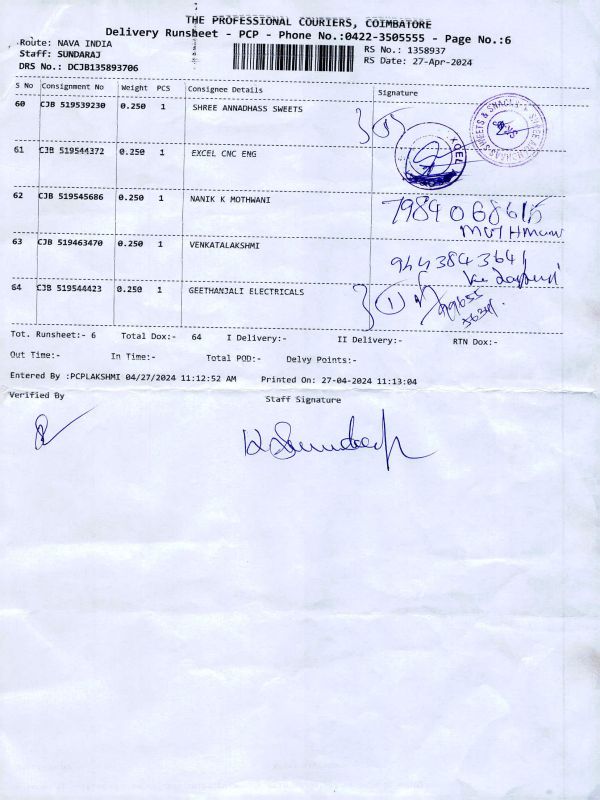 THE PROFESSIONAL COURIERS, COIMBATORE
Delivery Runsheet - PCP - Phone No.:0422-3505555 - Page No.:6
Route: NAVA INDIA
RS No.: 1358937
Staff: SUNDARAJ
RS Date: 27-Apr-2024
DRS No.: DCJB135893706
S No Consignment No Weight PCS Consignee Details Signature
60 CJB 519539230 0.250 1 SHREE ANNADHASS SWEETS
61 CJB 519544372 0.250 1 EXCEL CNC ENG
62 CJB 519545686 0.250 1 NANIK K MOTHWANI
63 CJB 519463470 0.250 1 VENKATALAKSHMI
9443843641
64 CJB 519544423 0.250 1 GEETHANJALI ELECTRICALS
1
Tot. Runsheet:- 6 Total Dox:- 64 I Delivery:- II Delivery:- RTN Dox:-
Out Time:- In Time:- Total POD:- Delvy Points:-
Entered By :PCPLAKSHMI 04/27/2024 11:12:52 AM Printed On: 27-04-2024 11:13:04
Verified By Staff Signature